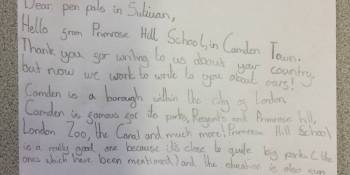 Dear pen pals in Sulivan,
Hello from Primrose Hill School, in Camden Town.
Thank you for writing to us about your country,
but now we want to write to you about ours!
Camden is a borough within the city of London.
Camden is famous for its parks, Regents and Primrose hill,
London Zoo, the Canal and much more! Primrose Hill School
is a really good one because it's close to quite big parks (the
ones which have been mentioned) and the education is also